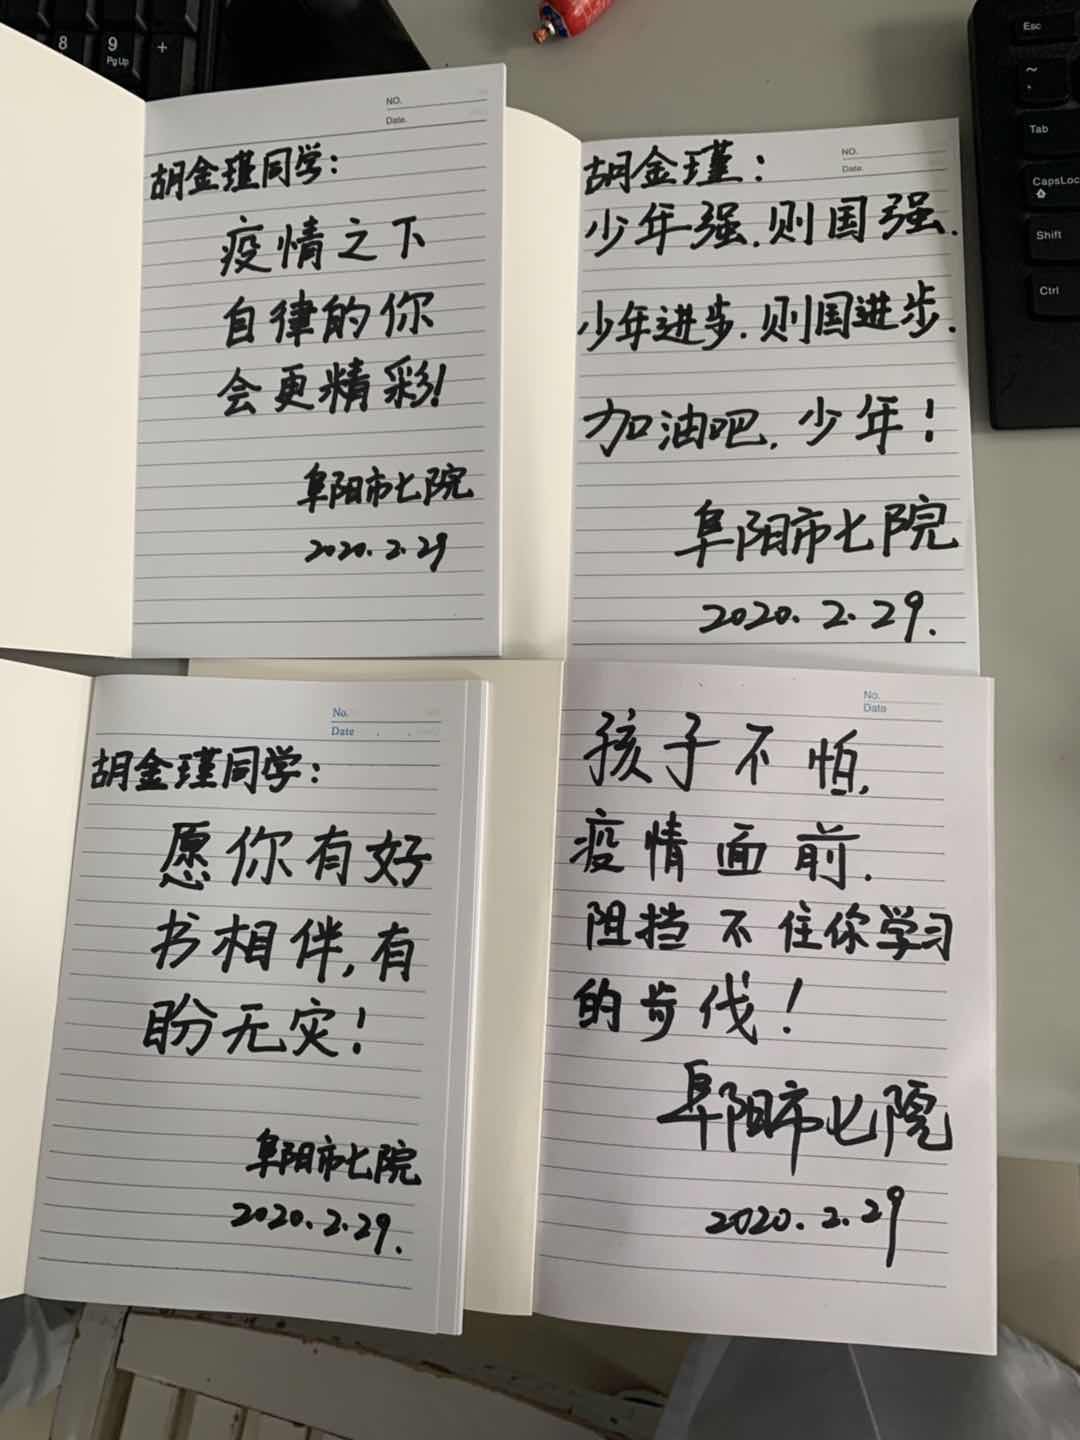 8
9
PgUp
+
NO.
Date.
胡金瑾同学：
疫情之下
自律的你
会更精彩！
阜阳市七院
2020.2.29
NO.
Date
胡金瑾：
少年强.则国强.
少年进步.则国进步.
加油吧,少年！
阜阳市七院
2020.2.29.
No.
Date
胡金瑾同学：
愿你有好
书相伴,有
盼无灾！
阜阳市七院
2020.2.29.
No.
Data
孩子不怕,
疫情面前.
阻挡不住你学习
的步伐！
阜阳市七院
2020.2.29
Esc
~
Tab
CapsLoc
Shift
Ctrl